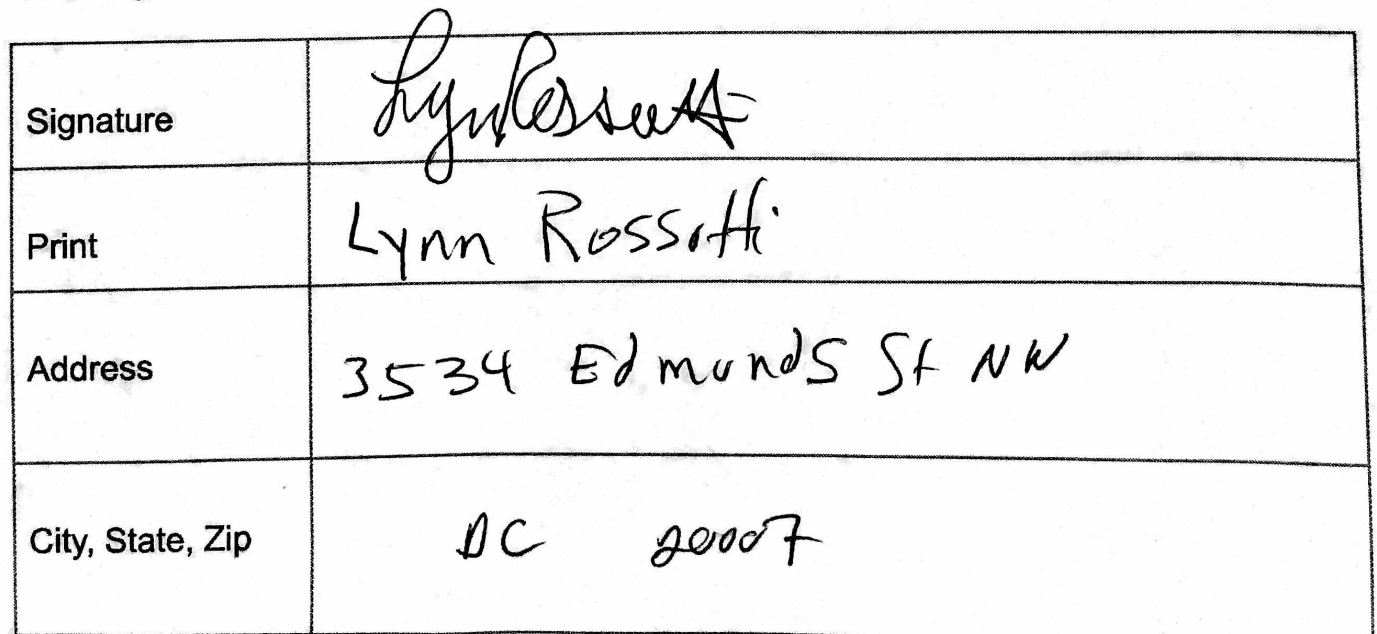 Signature Lynn Rossotti
Print Lynn Rossotti
Address 3534 Edmunds St NW
City, State, Zip DC 20007